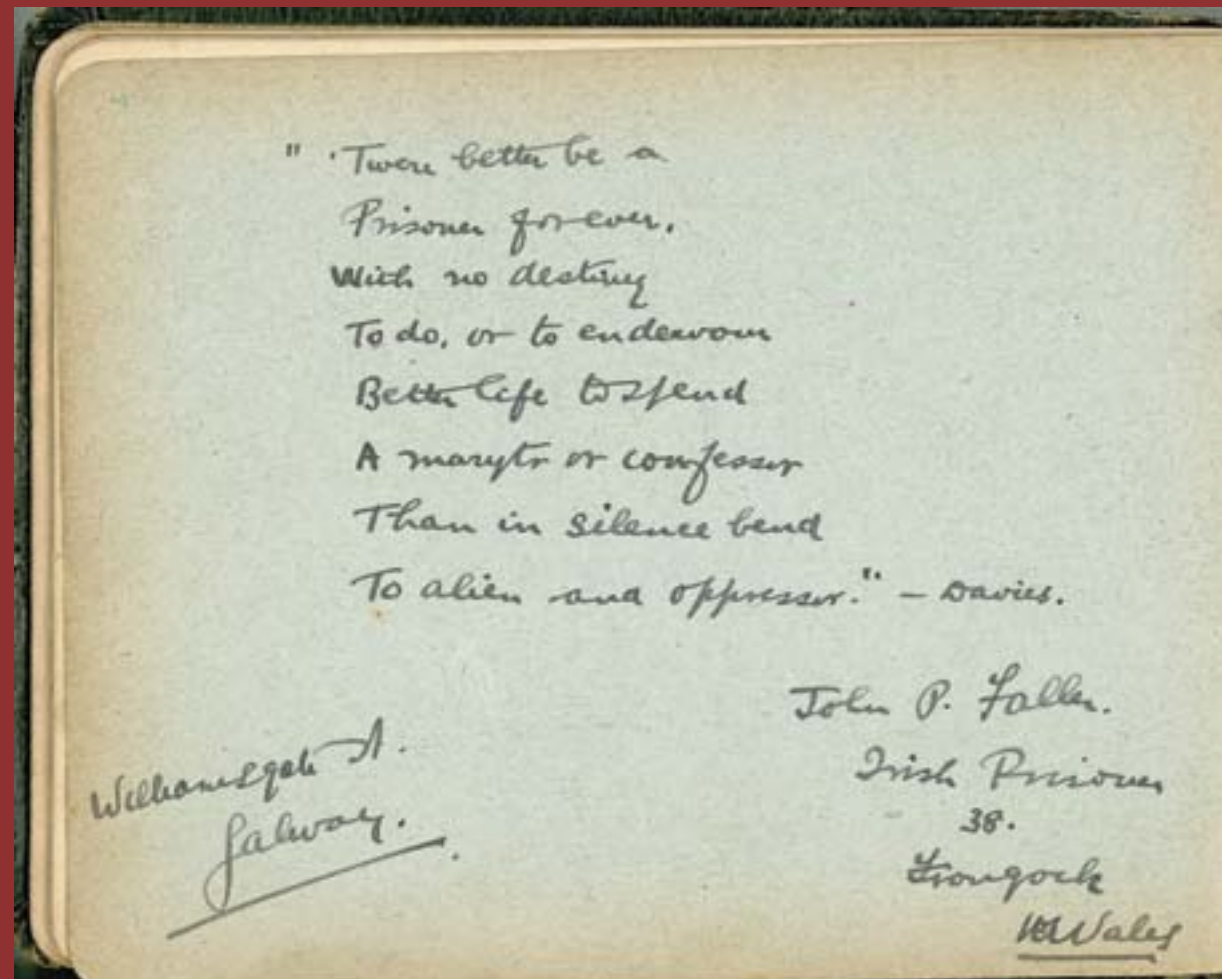 " 'Twere better be a
Prisoner forever,
With no destiny
To do, or to endeavour
Better life to spend
A marytr or confessor
Than in silence bend
To alien and oppressor." – Davies.
John P. Faller.
Irish Prisoner
38.
Frongoch
N Wales
Williamsgate St.
Galway.